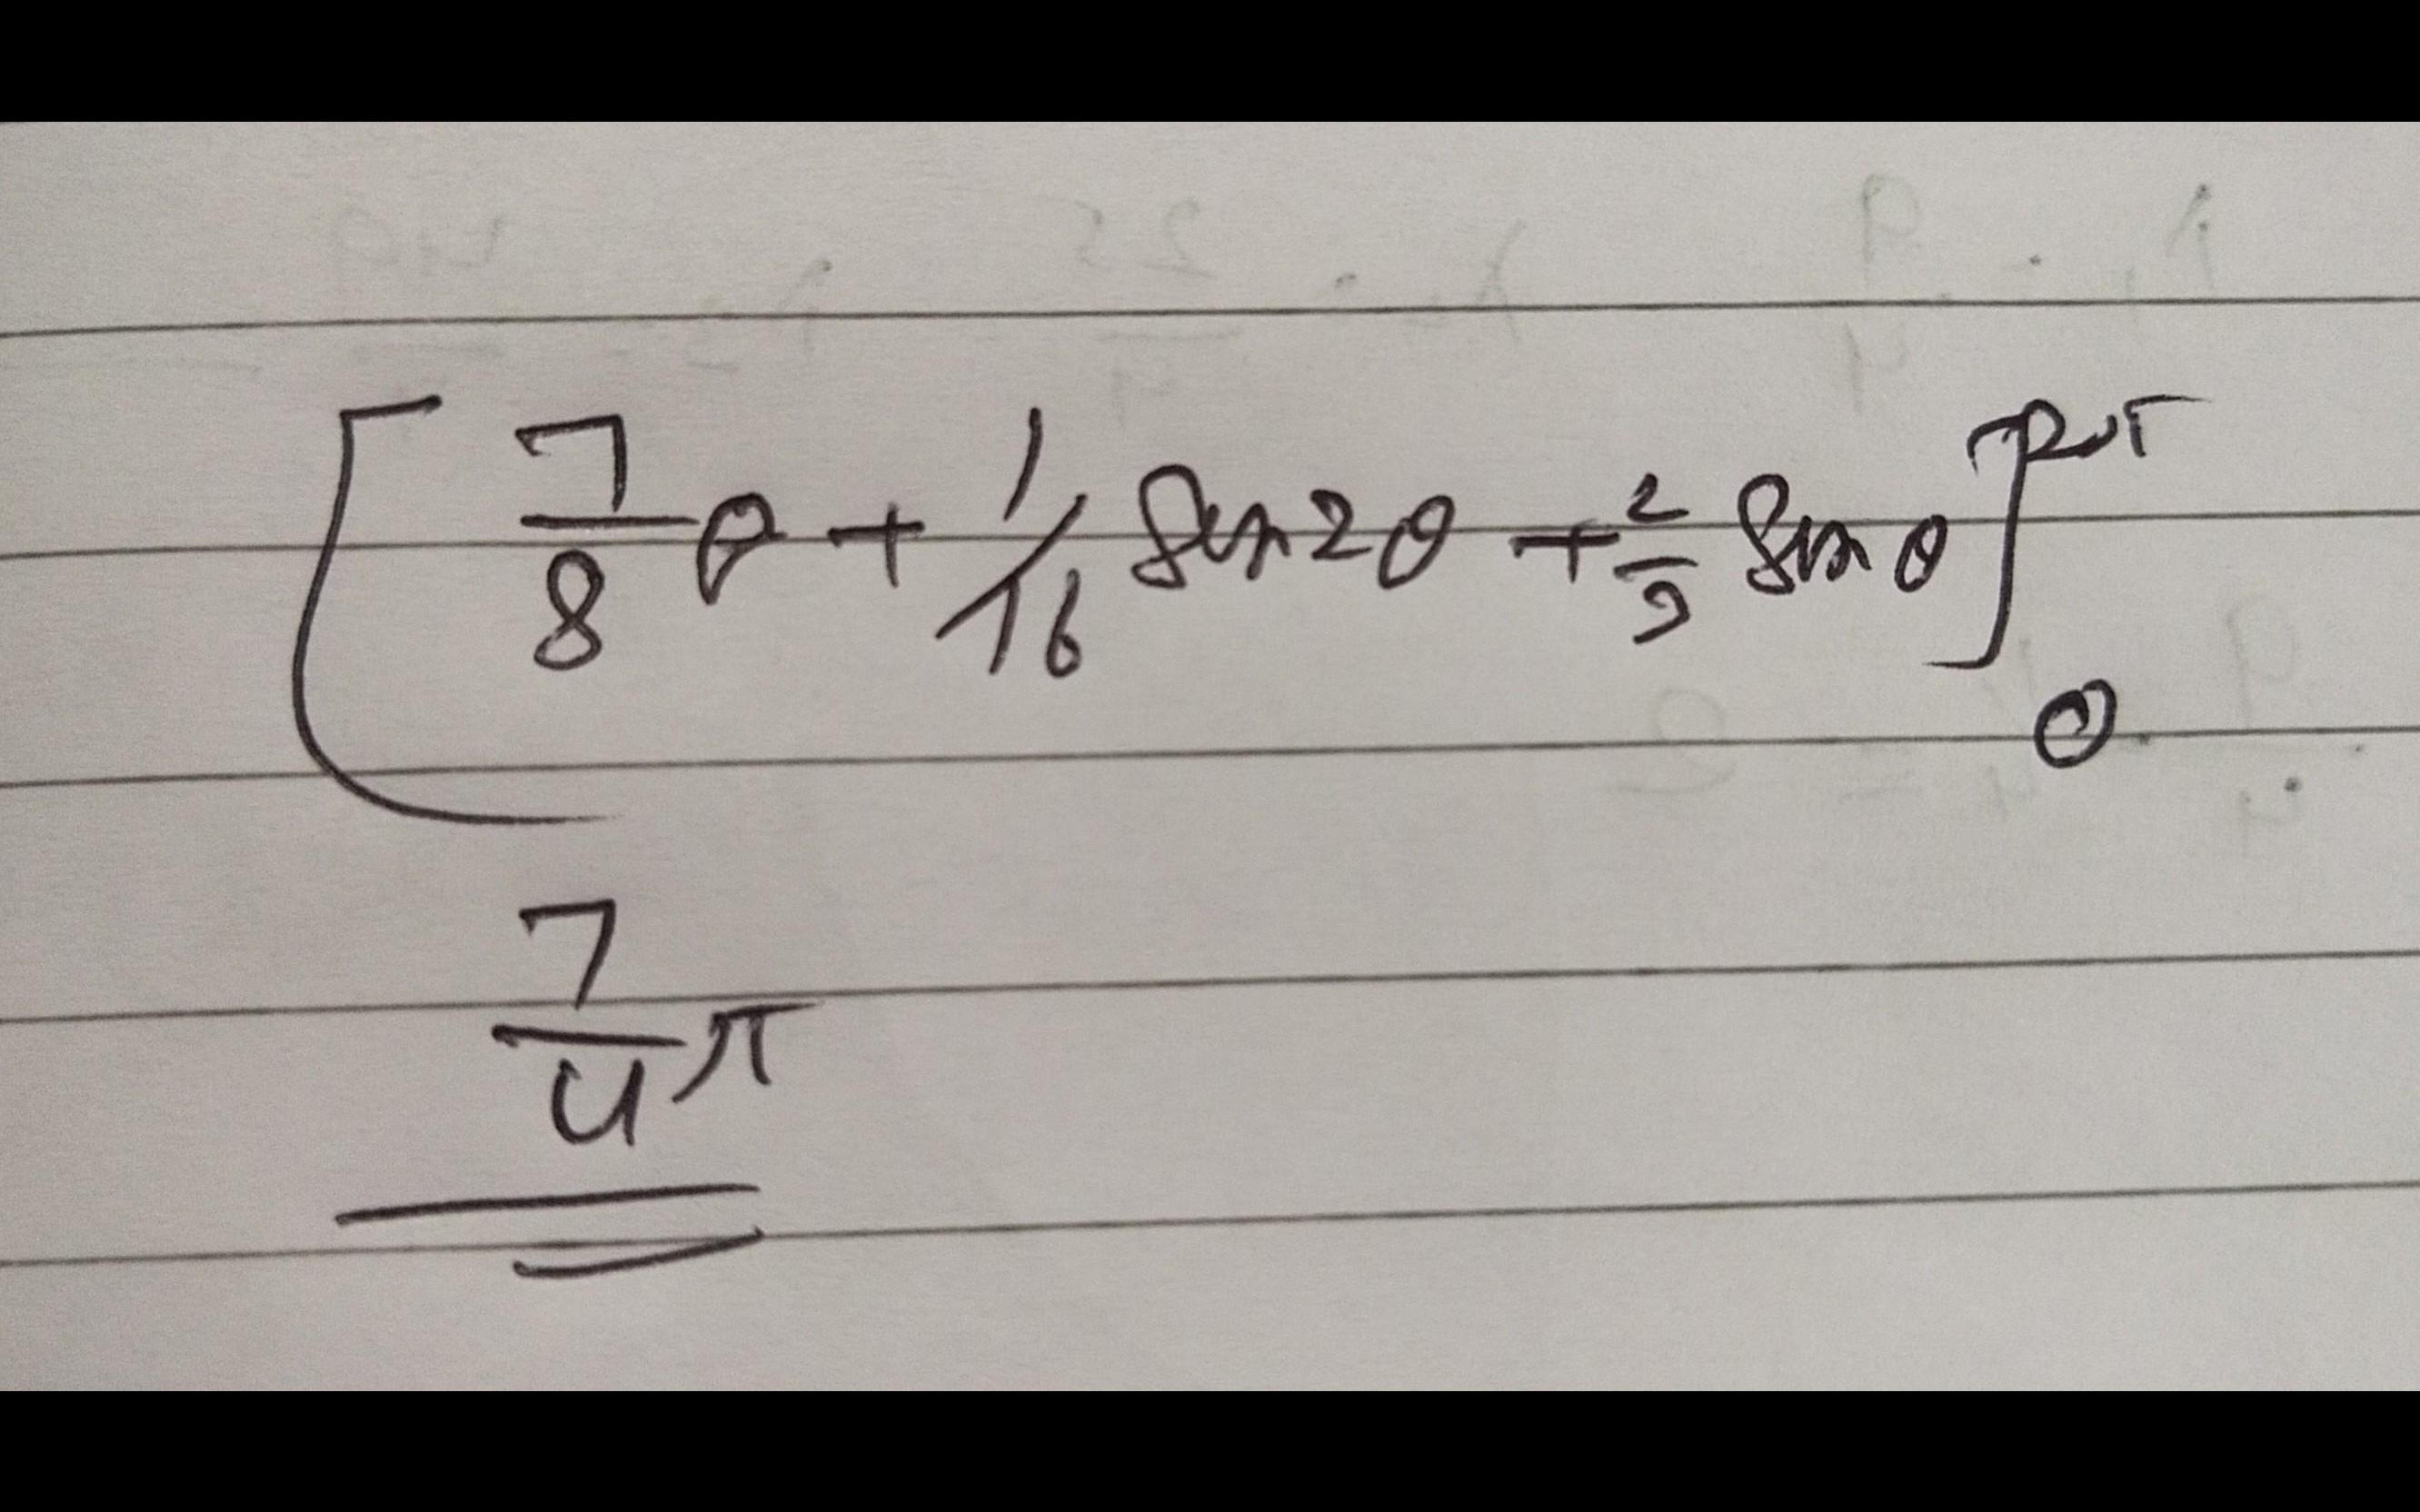 [7/8 θ + 1/16 Sin 2θ + 2/3 Sin θ]₀^2π
7/4 π